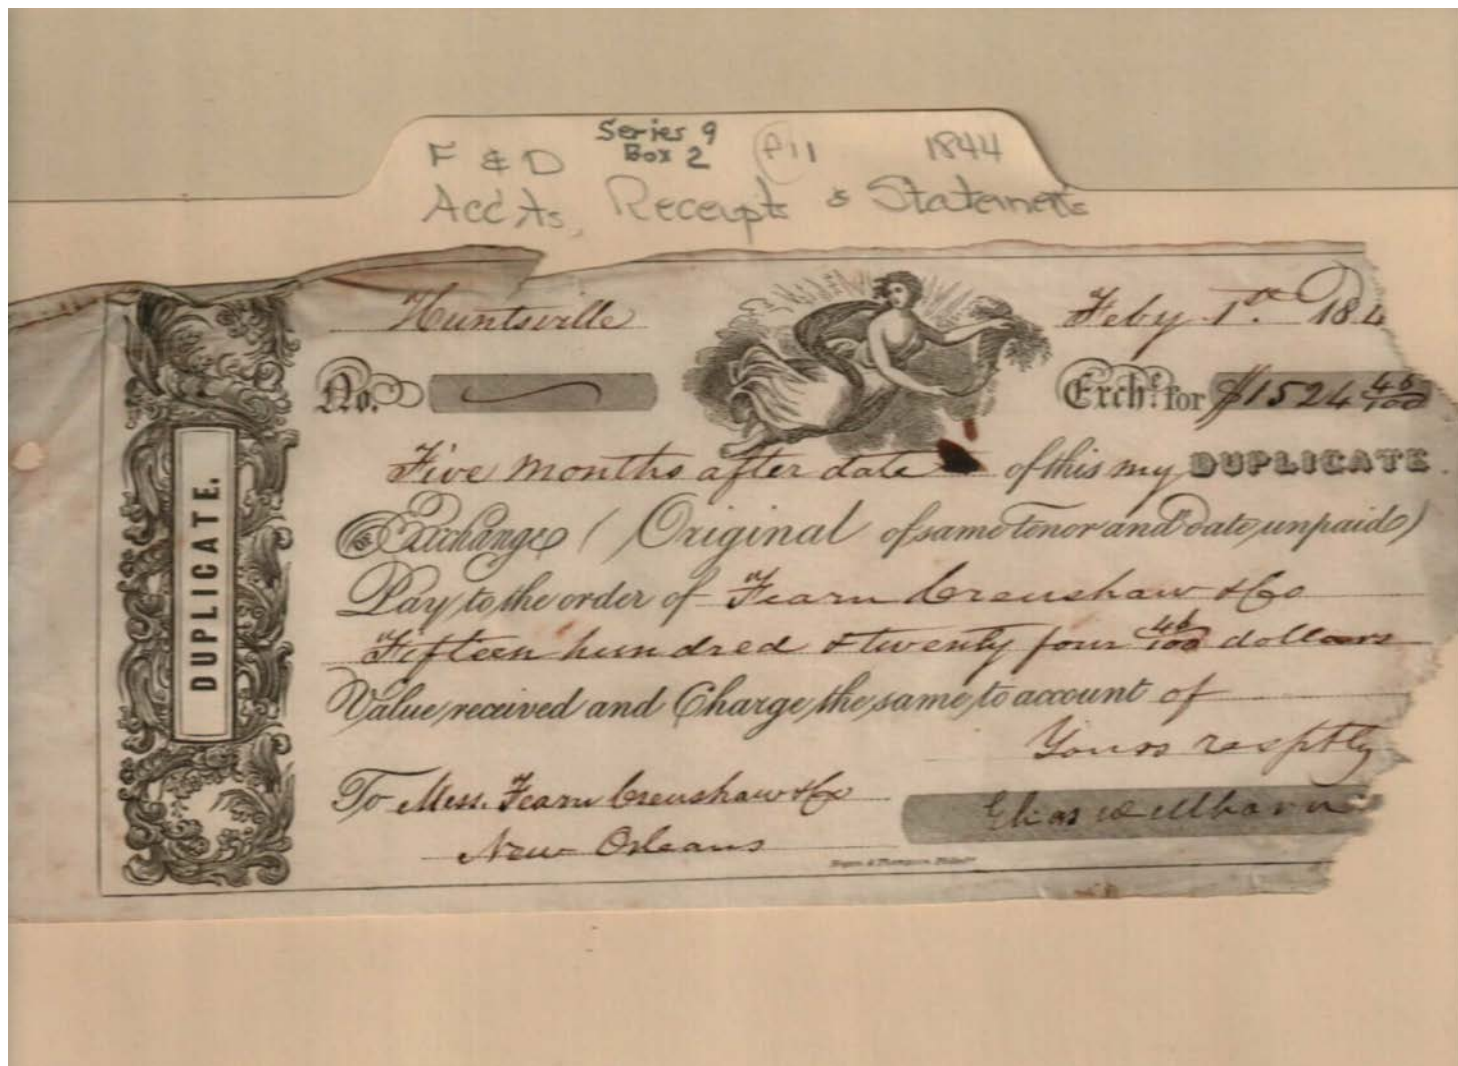 Series 9
F & D Box 2 P11 1844
Acc'ts, Receipts & Statements
Huntsville Feby 1st 184
No. Exche. for $1524 46/100
Five months after date of this my DUPLICATE.
of Exchange (Original of same tenor and date unpaid)
Pay to the order of Fearn Crenshaw & Co
Fifteen hundred & twenty four 46/100 dollars
Value received and Charge the same to account of
Yours resptly
To Mess. Fearn Crenshaw & Co
Elias
New Orleans
DUPLICATE.